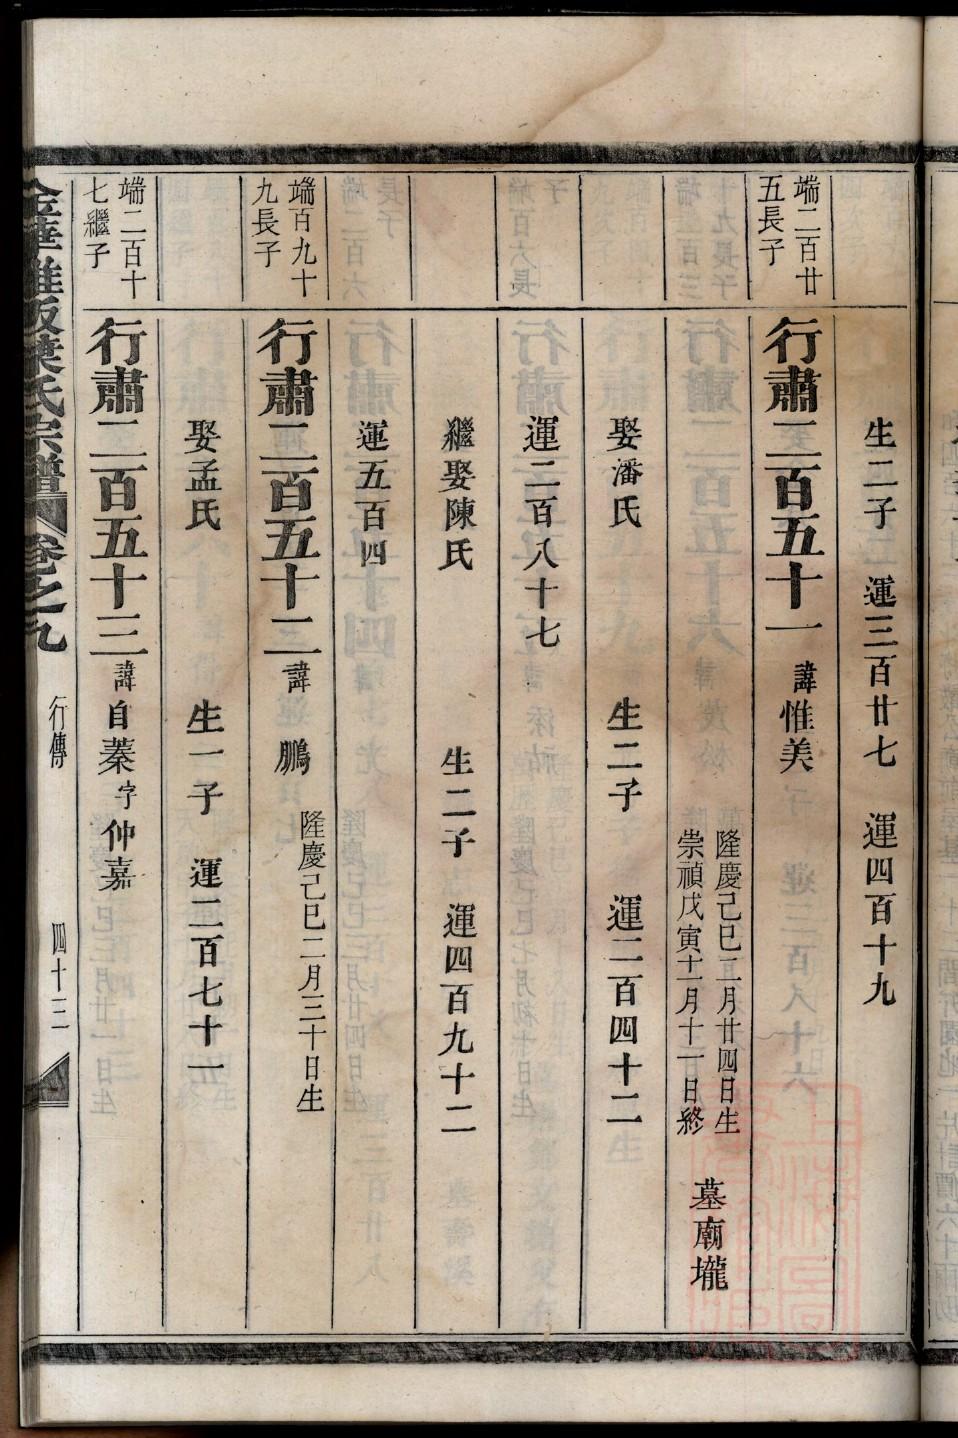 生二子 運三百廿七 運四百十九
端二百廿五長子
行肅二百五十一 諱惟美
隆慶己巳二月廿四日生
崇禎戊寅十二月十一日終
墓廟壠
娶潘氏 生二子 運二百四十二
運二百八十七
繼娶陳氏 生二子 運四百九十二
運五百四
端百九十九長子
行肅二百五十二 諱鵬 隆慶己巳二月三十日生
娶孟氏 生一子 運二百七十一
端二百十七繼子
行肅二百五十三 諱自蓁 字仲嘉
葉氏宗譜 卷之九 行傳 四十三